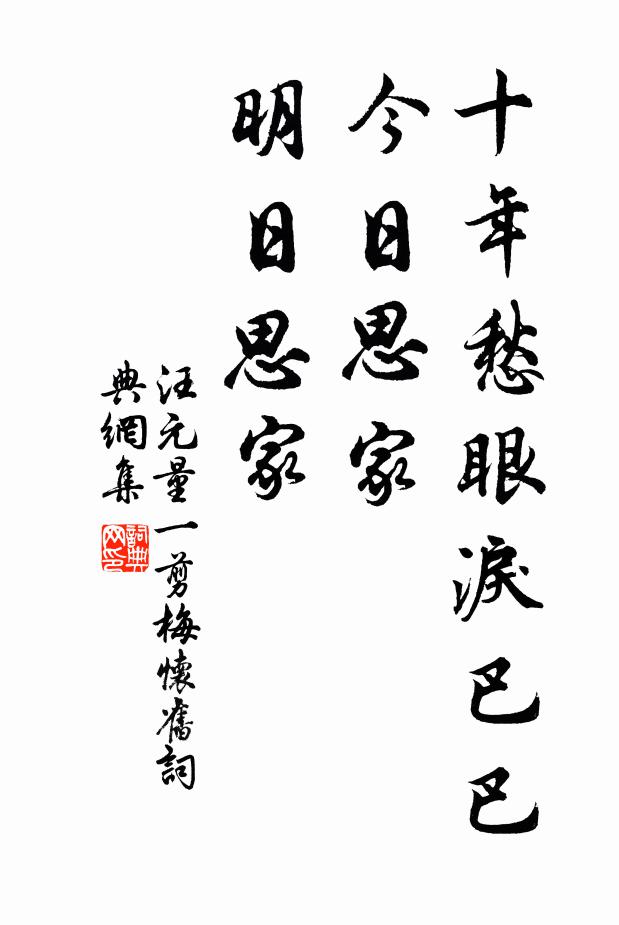 十年愁眼淚巴巴
今日思家
明日思家
汪元量一剪梅懷舊詞
典網集
詞典网印